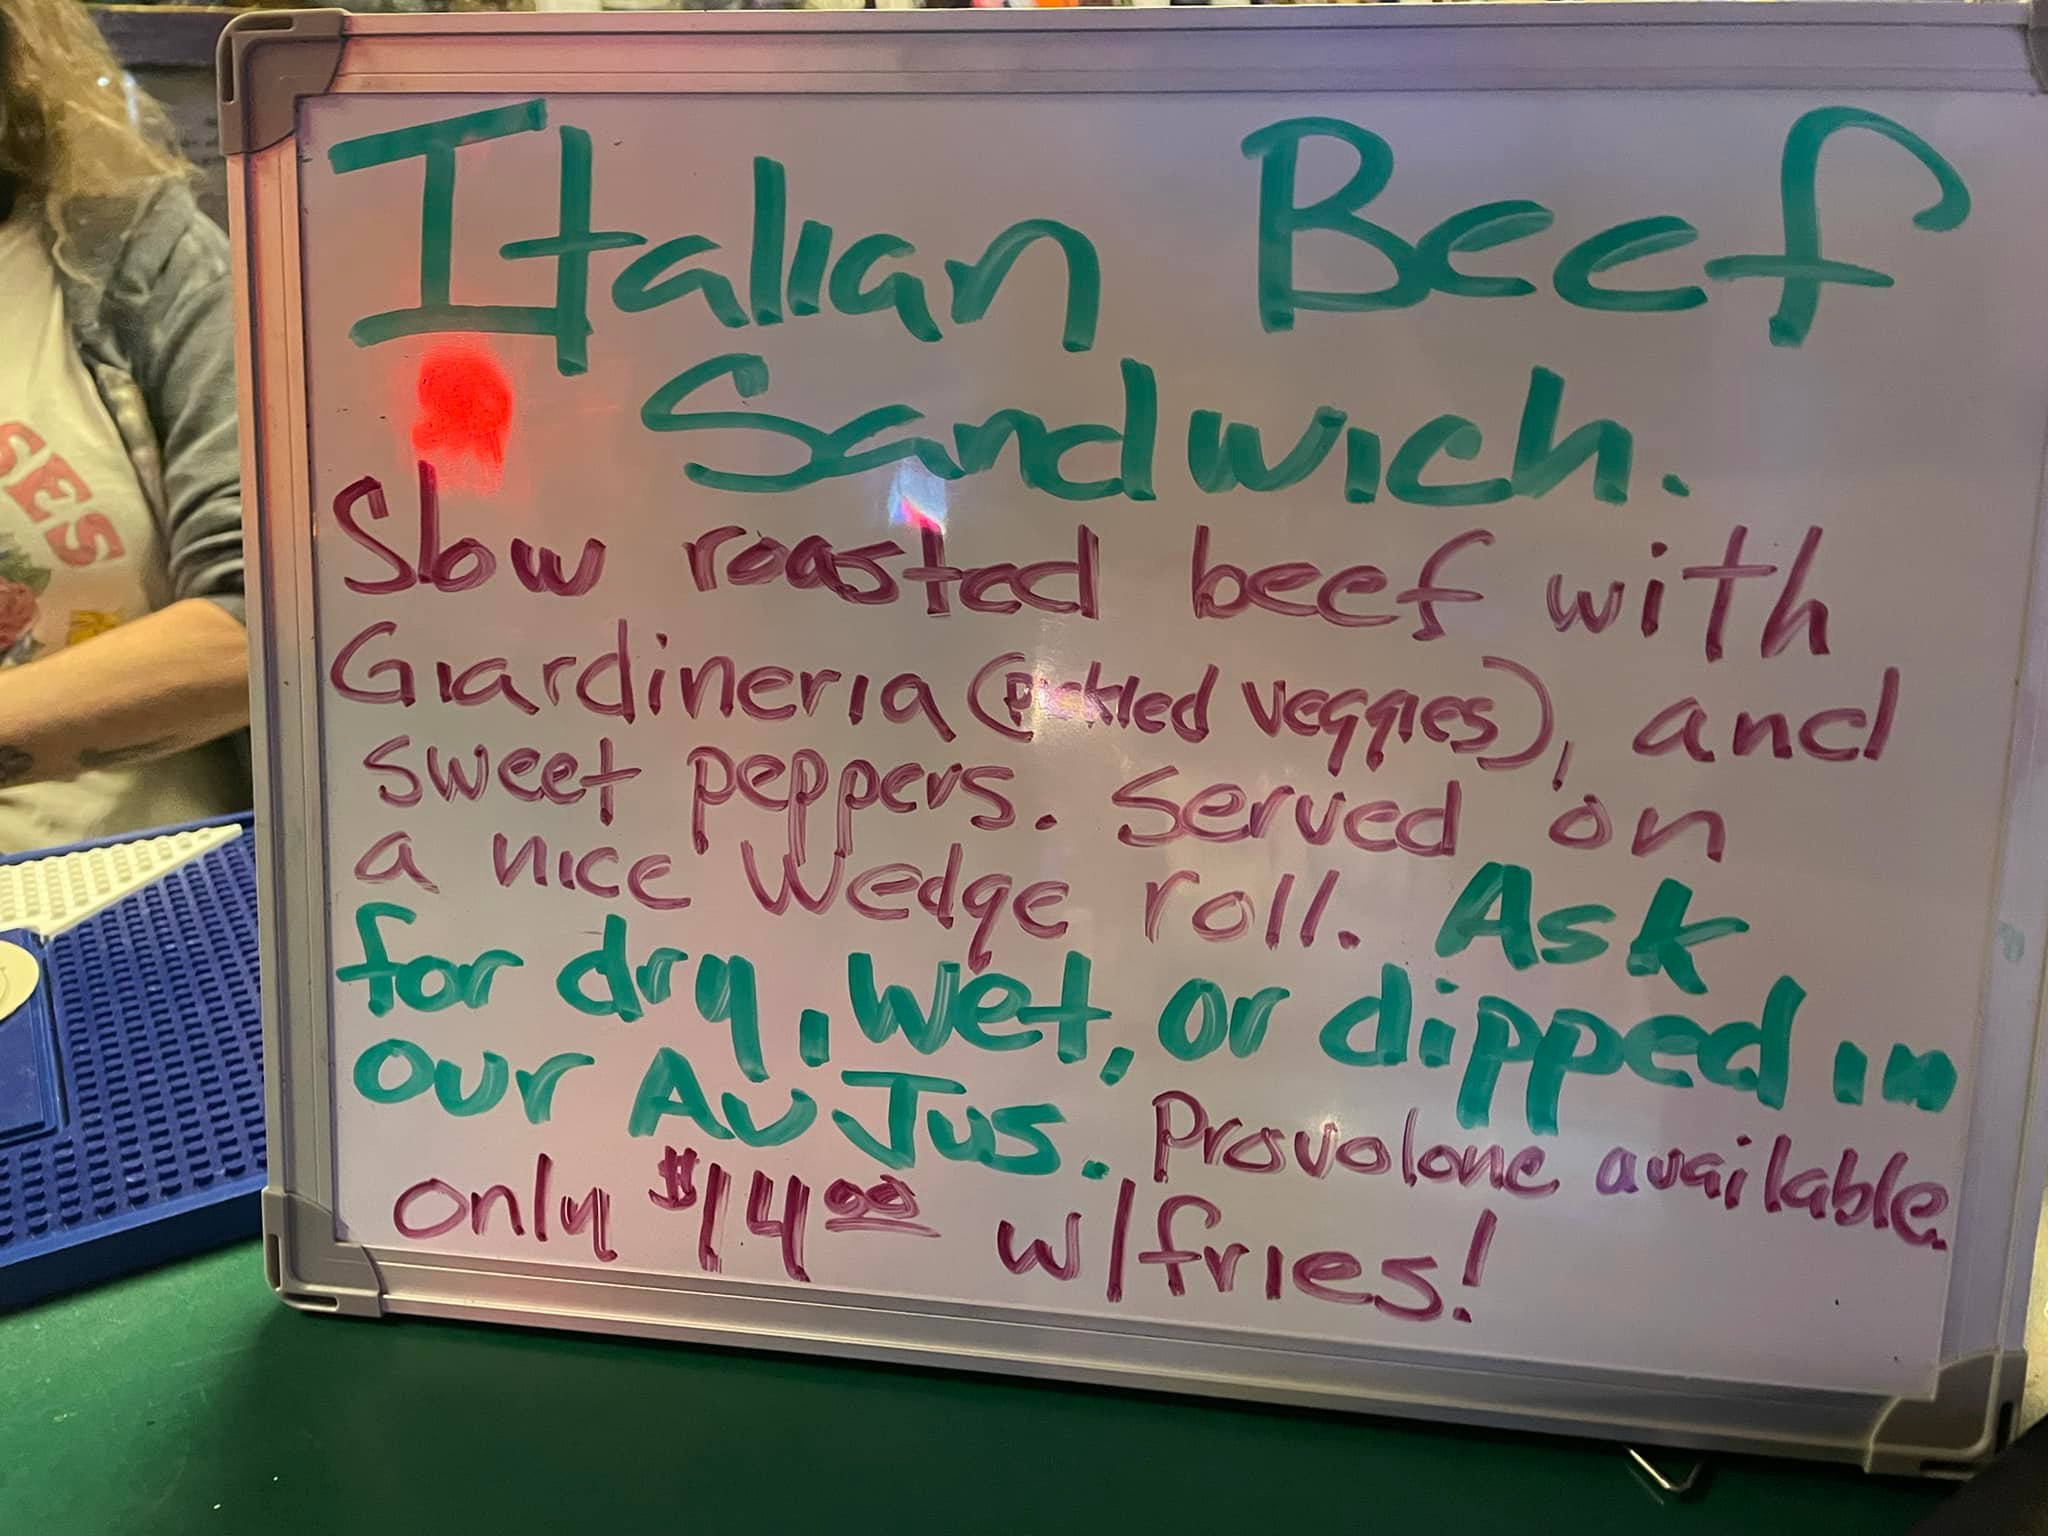 Italian Beef
Sandwich.
Slow roasted beef with
Giardineria (pickled veggies), and
sweet peppers. Served on
a nice Wedge roll. Ask
for dry, wet, or dipped in
our Au Jus. Provolone available.
only $14.00 w/fries!